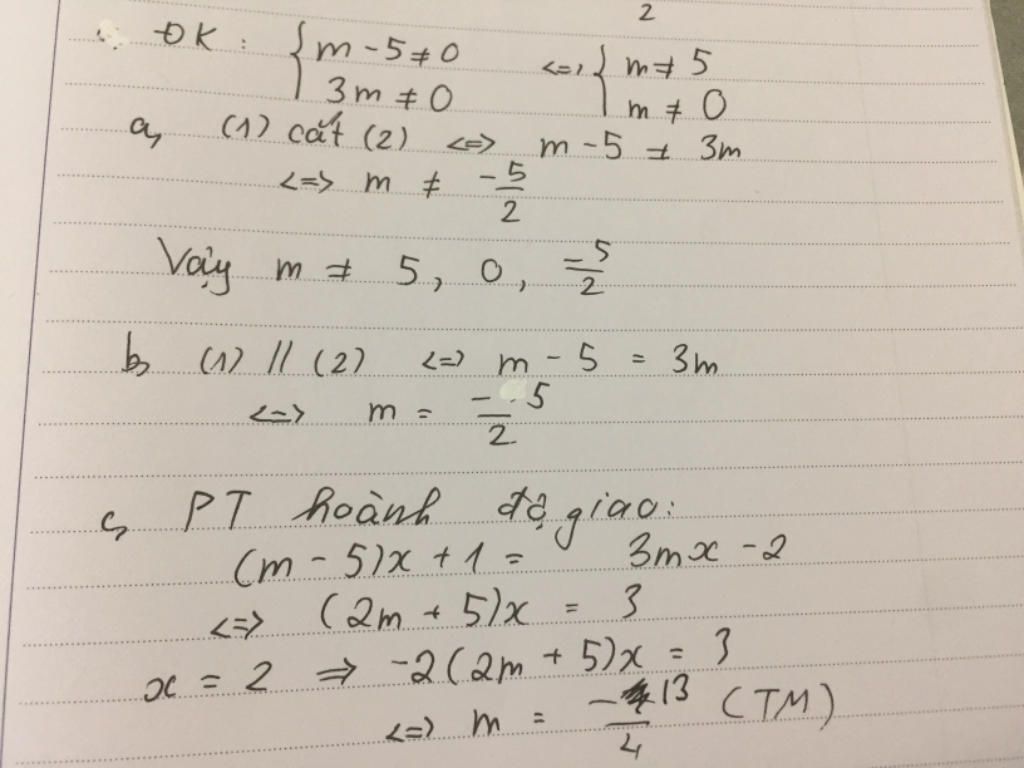 2
ĐK: { m - 5 ≠ 0 <=> { m ≠ 5
3m ≠ 0 m ≠ 0
a, (1) cắt (2) <=> m - 5 ≠ 3m
<=> m ≠ -5/2
Vậy m ≠ 5, 0, -5/2
b, (1) // (2) <=> m - 5 = 3m
<=> m = -5/2
c, PT hoành độ giao:
(m - 5)x + 1 = 3mx - 2
<=> (2m + 5)x = 3
x = 2 => -2(2m + 5)x = 3
<=> m = -13/4 (TM)